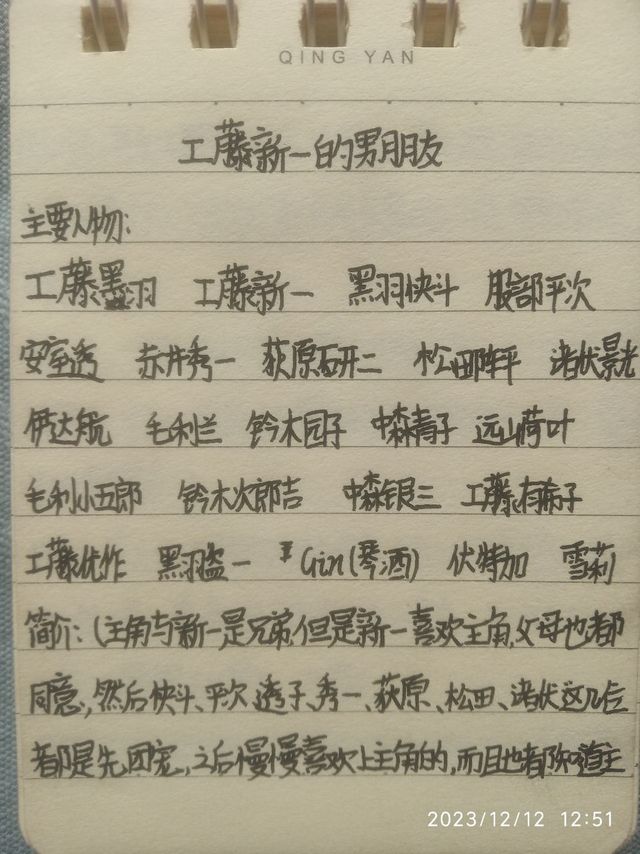 QING YAN
工藤新一的男朋友
主要人物:
工藤墨羽 工藤新一 黑羽快斗 服部平次
安室透 赤井秀一 荻原研二 松田阵平 诸伏景光
伊达航 毛利兰 铃木园子 中森青子 远山荷叶
毛利小五郎 铃木次郎吉 中森银三 工藤有希子
工藤优作 黑羽盗一 Gin(琴酒) 伏特加 雪莉
简介:(主角与新一是兄弟,但是新一喜欢主角,父母也都
同意,然后快斗、平次、透子、秀一、荻原、松田、诸伏这几位
都是先团宠,之后慢慢喜欢上主角的,而且也都知道主
2023/12/12 12:51